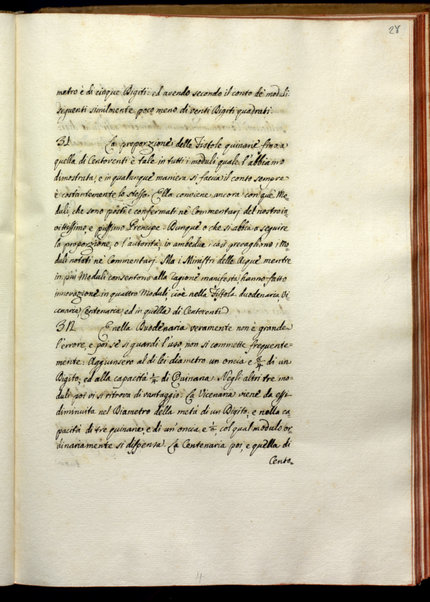 28
matro è di cinque Digiti: ed avendo secondo il conto de' moduli
seguenti similmente poco meno di venti Digiti quadrati.
31. La proporzione della Fistole quinarie fina a
quella di Centoventi è tale in tutti i moduli quale l'abbiamo
dimostrata, e in qualunque maniera si faccia il conto sempre
è costantemente la stessa. Ella conviene ancora con quei Mo-
duli, che sono posti e confermati ne' Commentarj del nostro in-
vittissimo, e piissimo Prencipe. Dunque o che si abbia a seguire
la proporzione, o l'autorità, io ambedue i casi prevagliono i Mo-
duli notati ne' Commentarj. Ma i Ministri delle Acque mentre
in più Moduli consentono alla Ragione manifesta, hanno fatto
innovazione in quattro Moduli, cioè nella Fistola duodenaria, Vi-
cenaria, Centenaria, ed in quella di Centoventi.
32. E nella Duodenaria veramente non è grande
l'errore, e poi se si guardi l'uso non si commette frequente-
mente. Aggiunsero al di lei diametro un oncia e di un
Digito, ed alla capacità di Quinaria. Negli altri tre mo-
duli poi vi si ritrova di vantaggio. La Vicenaria viene da essi
diminuita nel Diametro della metà di un Digito, e nella ca-
pacità di tre quinarie, e di un'oncia, e col qual modulo or-
dinariamente si dispensa. La Centenaria poi, e quella di
Cento-